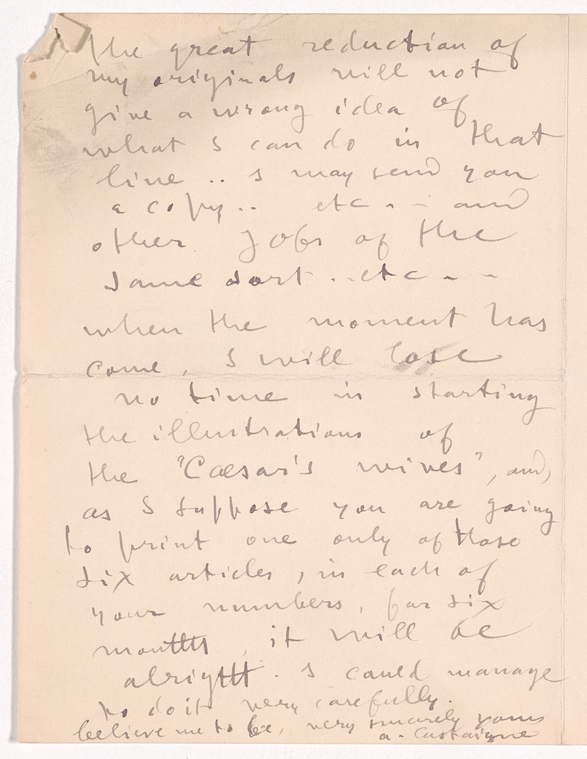 the great reduction of
my originals will not
give a wrong idea of
what I can do in that
line .. I may send you
a copy .. etc - - and
other jobs of the
same sort . . etc - -
when the moment has
come, I will lose
no time in starting
the illustrations of
the "Cæsar's wives", and,
as I suppose you are going
to print one only of those
six articles, in each of
your numbers, for six
months, it will be
alright. I could manage
to do it very carefully.
believe me to be, very sincerely yours
a. Castaigne